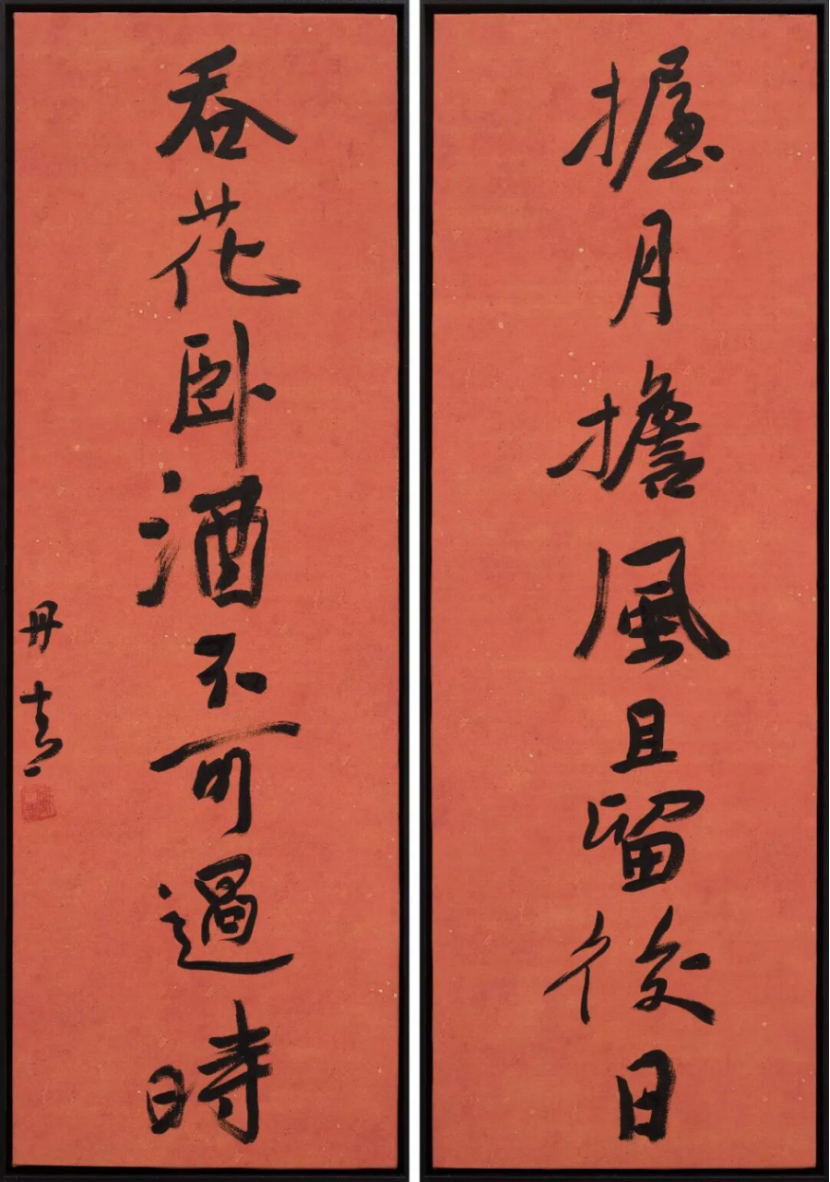 握月擔風且留後日
吞花臥酒不可過時
丹青